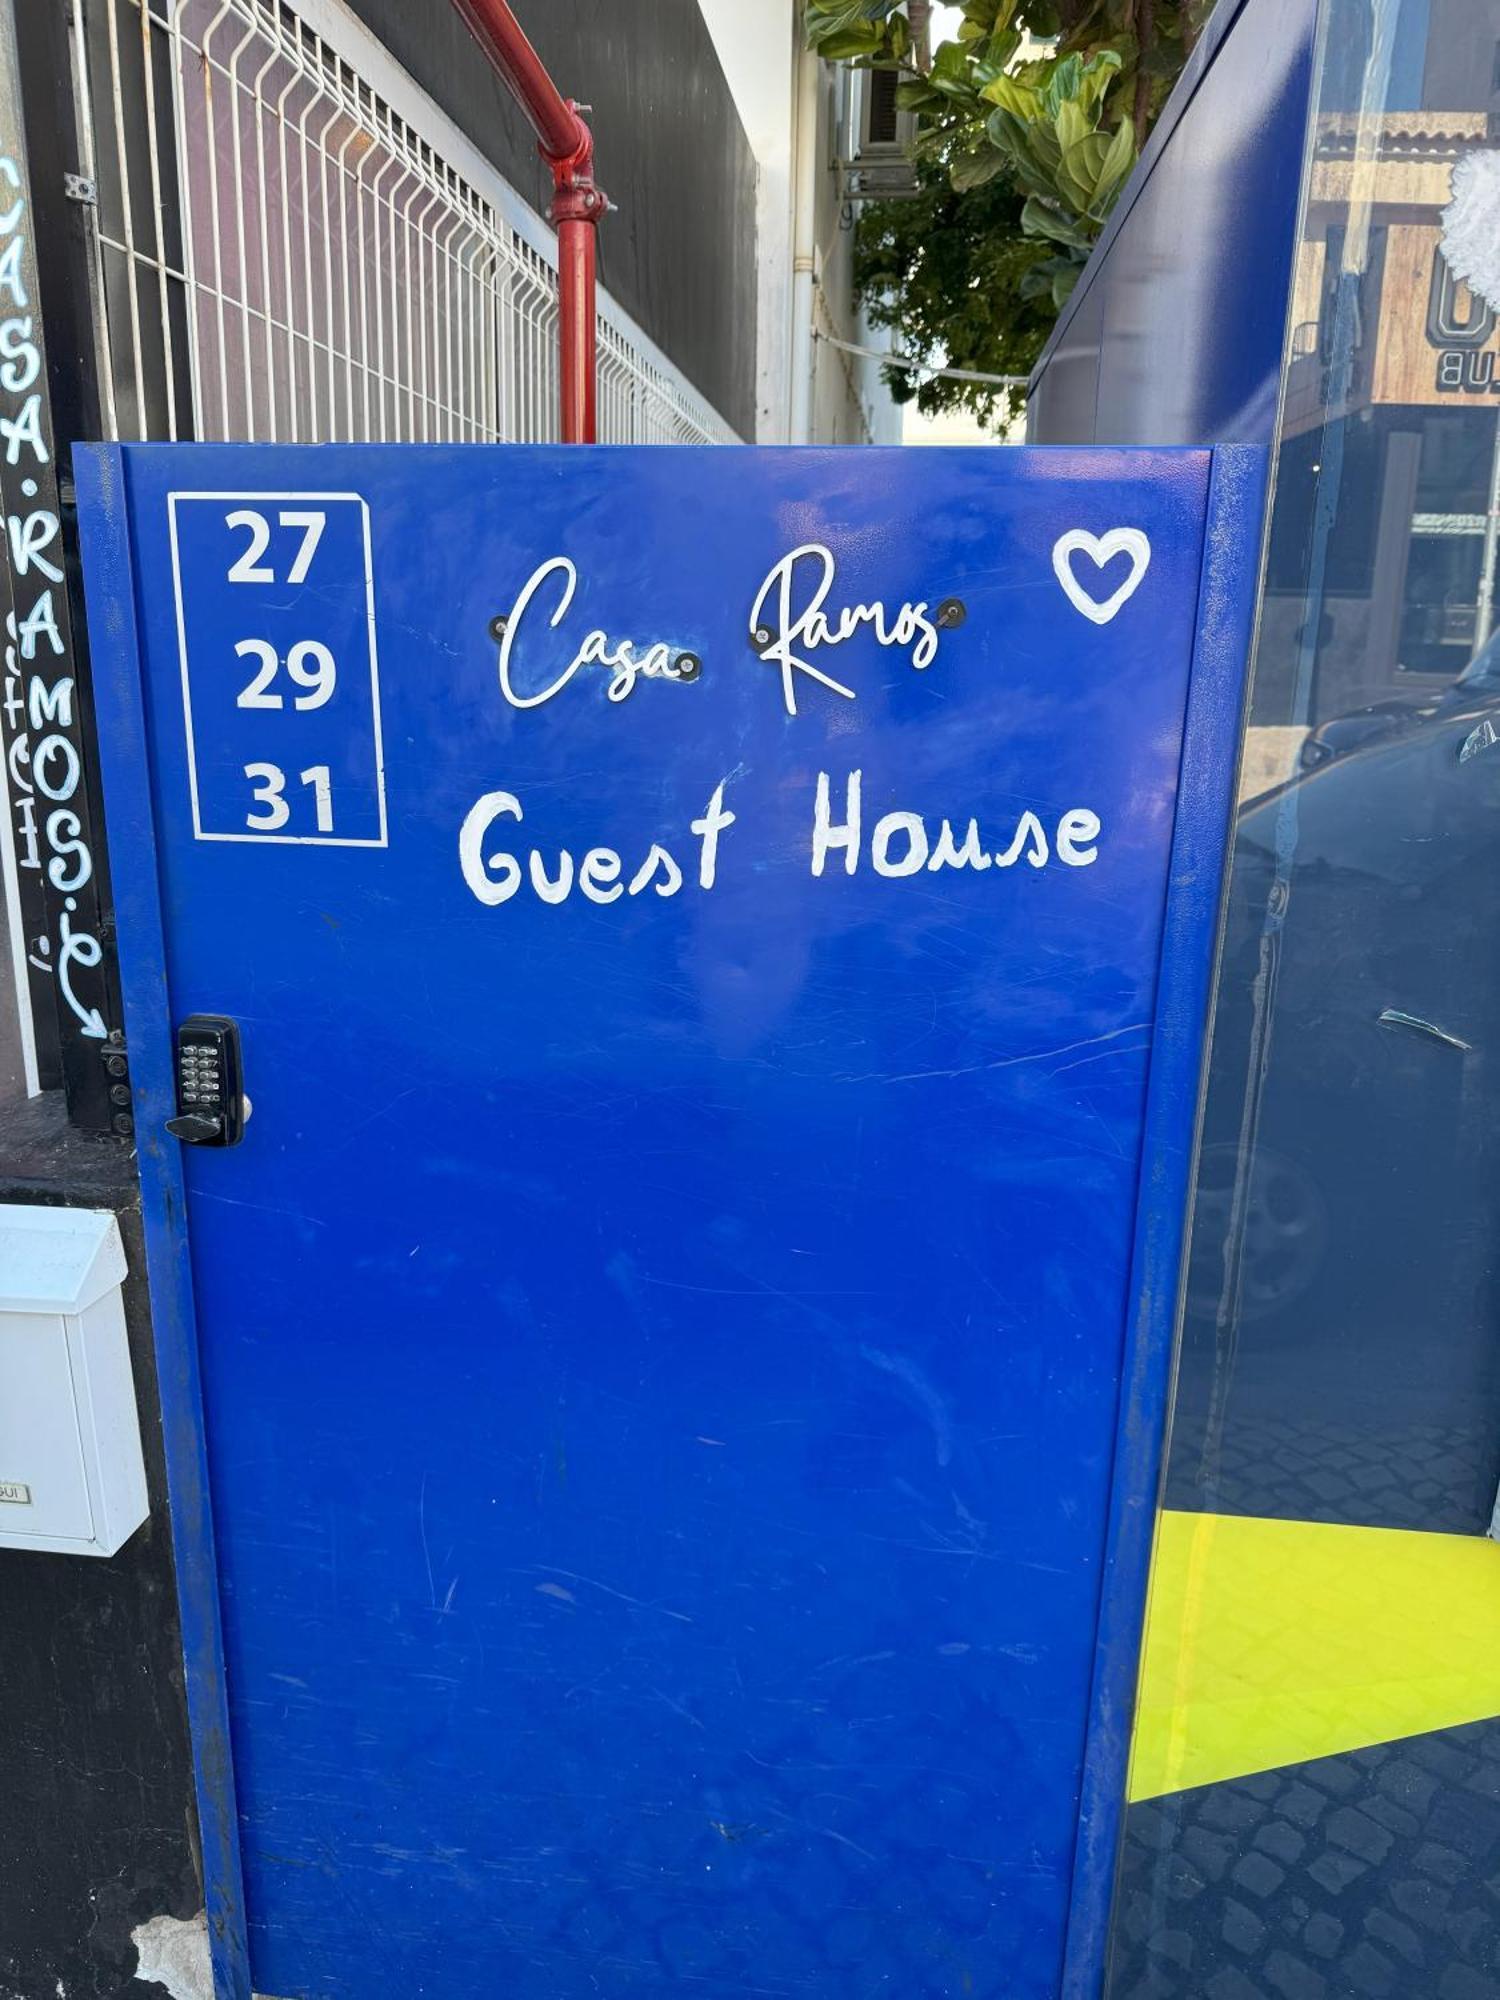 CASA.RAMOS.
27
29
31
Casa Ramos
Guest House